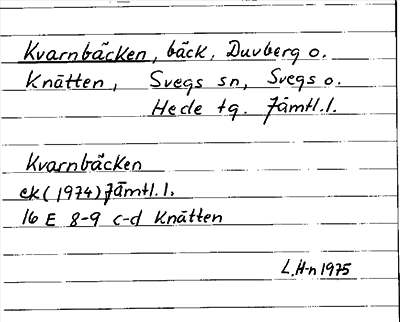 Kvarnbäcken, bäck, Duvberg o.
Knätten, Svegs sn, Svegs o.
Hede tg. Jämtl.l.
Kvarnbäcken
ek (1974) Jämtl.l.
16 E 8-9 c-d Knätten
L.H-n 1975